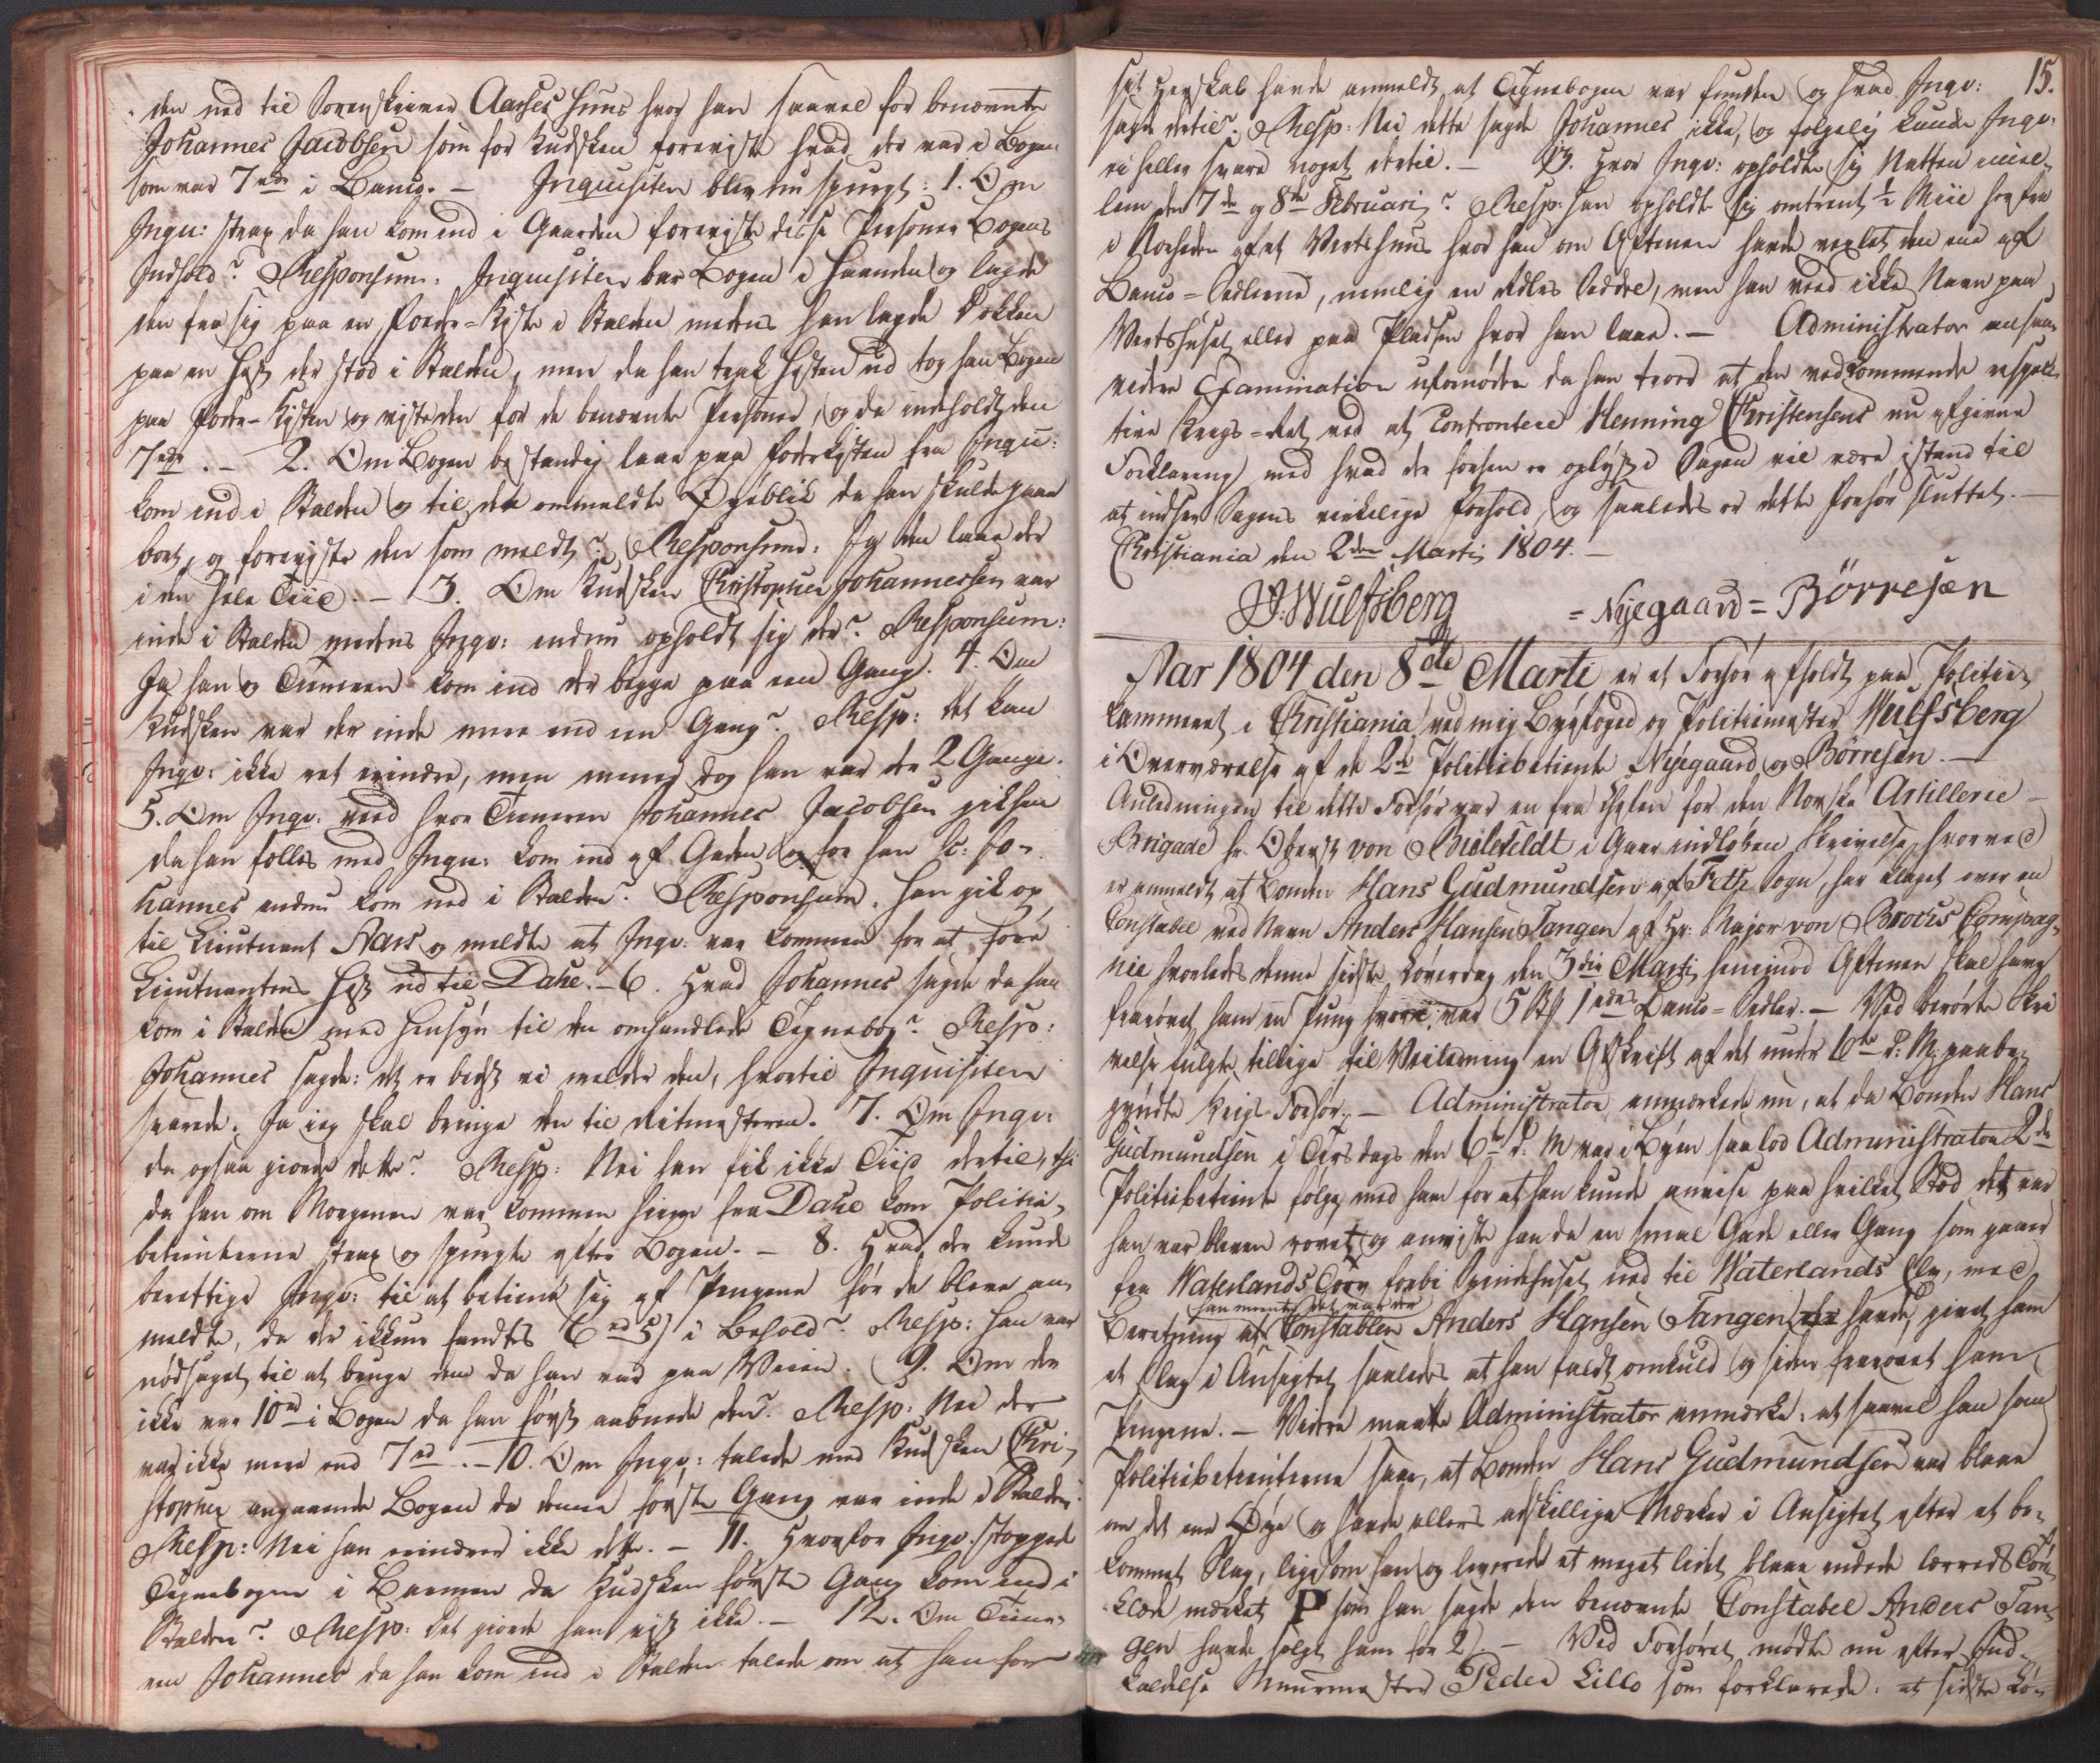 den ned til Sorenskriver Aasses Huus hvor han saavel for benævnte
Johannes Jacobsen som for Kudsken foreviiste hvad der var i Bogen
som var 7 rdr i Banco. — Inquisiten blev nu spurgt: 1. Om
Inqv: strax da han kom ind i Gaarden foreviiste disse Personer Bogens
Indhold? Responsum: Inquisiten bar Bogen i Haanden og lagde
den fra sig paa en Foder-Kiste i Stalden medens han lagde Dækken
paa en Hest der stod i Stalden, men da han trak Hesten ud tog han Bogen
paa Foder-Kisten og viiste den for de benævnte Personer, og da indeholdt den
7 rdr. — 2. Om Bogen bestandig laae paa Foderkisten fra Inqv:
kom ind i Stalden og til det ommeldte Øyeblik da han skulde gaae
bort, og foreviiste den som meldt? Responsum: Ja den laae der
i den hele Tiid. — 3. Om Kudsken Christopher Johannessen var
inde i Stalden medens Inqv: endnu opholdt sig der? Responsum:
Ja han og Tieneren kom ind der begge paa een Gang. 4. Om
Kudsken var der inde mere end een Gang? Resp: Det kan
Inqv: ikke ret erindre, men meener dog han var der 2 Gange.
5. Om Inqv: veed hvor Tieneren Johannes Jacobsen gik hen
da han følles med Inqv: kom ind af Gaden og før han Jo-
hannes endnu kom ned i Stalden? Responsum: Han gik op
til Lieutnant Aars og meldte at Inqv: var kommen for at føre
Lieutnantens Hest ud til Dahl. — 6. Hvad Johannes sagde da han
kom i Stalden med Hensyn til den omhandlede Tegnebog? Resp:
Johannes sagde: det er bedst vi melder den, hvortil Inquisiten
svarede: Ja jeg skal bringe den til Ritmesteren. 7. Om Inqv:
da ogsaa giorde dette? Resp: Nei han fik ikke Tiid dertil, thi
da han om Morgenen var kommen hiem fra Dahl kom Politie-
betienterne strax og spurgte efter Bogen. — 8. Hvad der kunde
berettige Inqv: til at betiene sig af Pengene før de bleve an-
meldte, da der ikkun fandtes 6 rd i Behold? Resp: Han var
nødsaget til at bruge dem da han var paa Veien. 9. Om der
ikke var 10 rd i Bogen da han først aabnede den? Resp: Nei der
var ikke mere end 7 rd. — 10. Om Inqv: talede med Kudsken Chri-
stopher angaaende Bogen da denne første Gang var inde i Stalden?
Resp: Nei han erindrer ikke dette. — 11. Hvorfor Inqv: stoppede
Tegnebogen i Barmen da Kudsken første Gang kom ind i
Stalden? Resp: Det giorde han vist ikke. — 12. Om Tiene-
ren Johannes da han kom ind i Stalden talede om at han for
15.
sit Herskab havde anmeldt at Tegnebogen var funden og hvad Inqv:
sagde dertil? Resp: Nei dette sagde Johannes ikke, og følgelig kunde Inqv:
ei heller svare noget dertil. — 13. Hvor Inqv: opholdte sig Natten imel-
lem den 7de og 8de Februarii? Resp: han opholdt sig omtrent ½ Miil herfra
i Nærheden af et Vertshuus hvor han om Aftenen havde vexlet den ene af
Banco-Sedlerne, nemlig en Rdlrs Seddel, men han veed ikke Navn paa
Vertshuset eller paa Pladsen hvor han laae. — Administrator ansaae
videre Examination ufornøden da han troer at den vedkommende respek-
tive Krigs-Ret ved at Confrontere Henning Christensens nu afgivne
Forklaring med hvad der forhen er oplyst i Sagen vil være istand til
at indsee Sagens virkelige Forhold, og saaledes er dette Forhør sluttet. —
Christiania den 2den Martii 1804. —
J. Wulfsberg = Nyegaard = Börresen
Aar 1804 den 8de Marti er et Forhør afholdt paa Politie-
Kammeret i Christiania ved mig Byefoged og Politiemester Wulfsberg
i Overværelse af de 2de Politiebetiente Nyegaard og Börresen. —
Anledningen til dette Forhør var en fra Chefen for den Norske Artillerie-
Brigade hr. Oberst von Bielefeldt i Gaar indløben Skrivelse, hvorved
er anmeldt at Bonden Hans Gudmundsen af Feth Sogn, har klaget over en
Constabel ved Navn Anders Hansen Tangen af Hr: Major von Compag-
nie hvorledes denne sidste Løverdag den 3die Martii henimod Aftenen skal have
frarøvet ham en Pung hvori var 5 1 rdrs Banco-Sedler. — Ved berørte Skri-
velse fulgte tillige til Veiledning en Afskrift af det under 6te d: M: paabe-
gyndte Krigs-Forhør. — Administrator anmærkede nu, at da Bonden Hans
Gudmundsen i Tirsdags den 6te d: M: var i Byen saa lod Administrator 2de
Politiebetiente følge med ham for at han kunde anvise paa hvilket Stød det var
han var bleven røvet, og anviiste han da en smal Gade eller Gang som gaaer
fra Waterlands Torv forbi Spindehuset ned til Waterlands Elv, med
han meente det var der
Beretning at Constablen Anders Hansen Tangen havde givet ham
et Slag i Ansigtet saaledes at han faldt omkuld og siden frarøvet ham
Pengene. — Videre maatte Administrator anmærke: at saavel han som
Politiebetienterne saae, at Bonden Hans Gudmundsen var blaae
om det ene Øye og havde ellers adskillige Mærker i Ansigtet efter at be-
kommet Slag, ligesom han og leverede et meget lidet blaae rudede Lærreds Tør-
klæde mærket P som han sagde den benævnte Constabel Anders Tan-
gen havde solgt ham for 2 — Ved Forhøret mødte nu efter Ind-
kaldelse Muurmester Peder Lillo som forklarede: at sidste Lø-